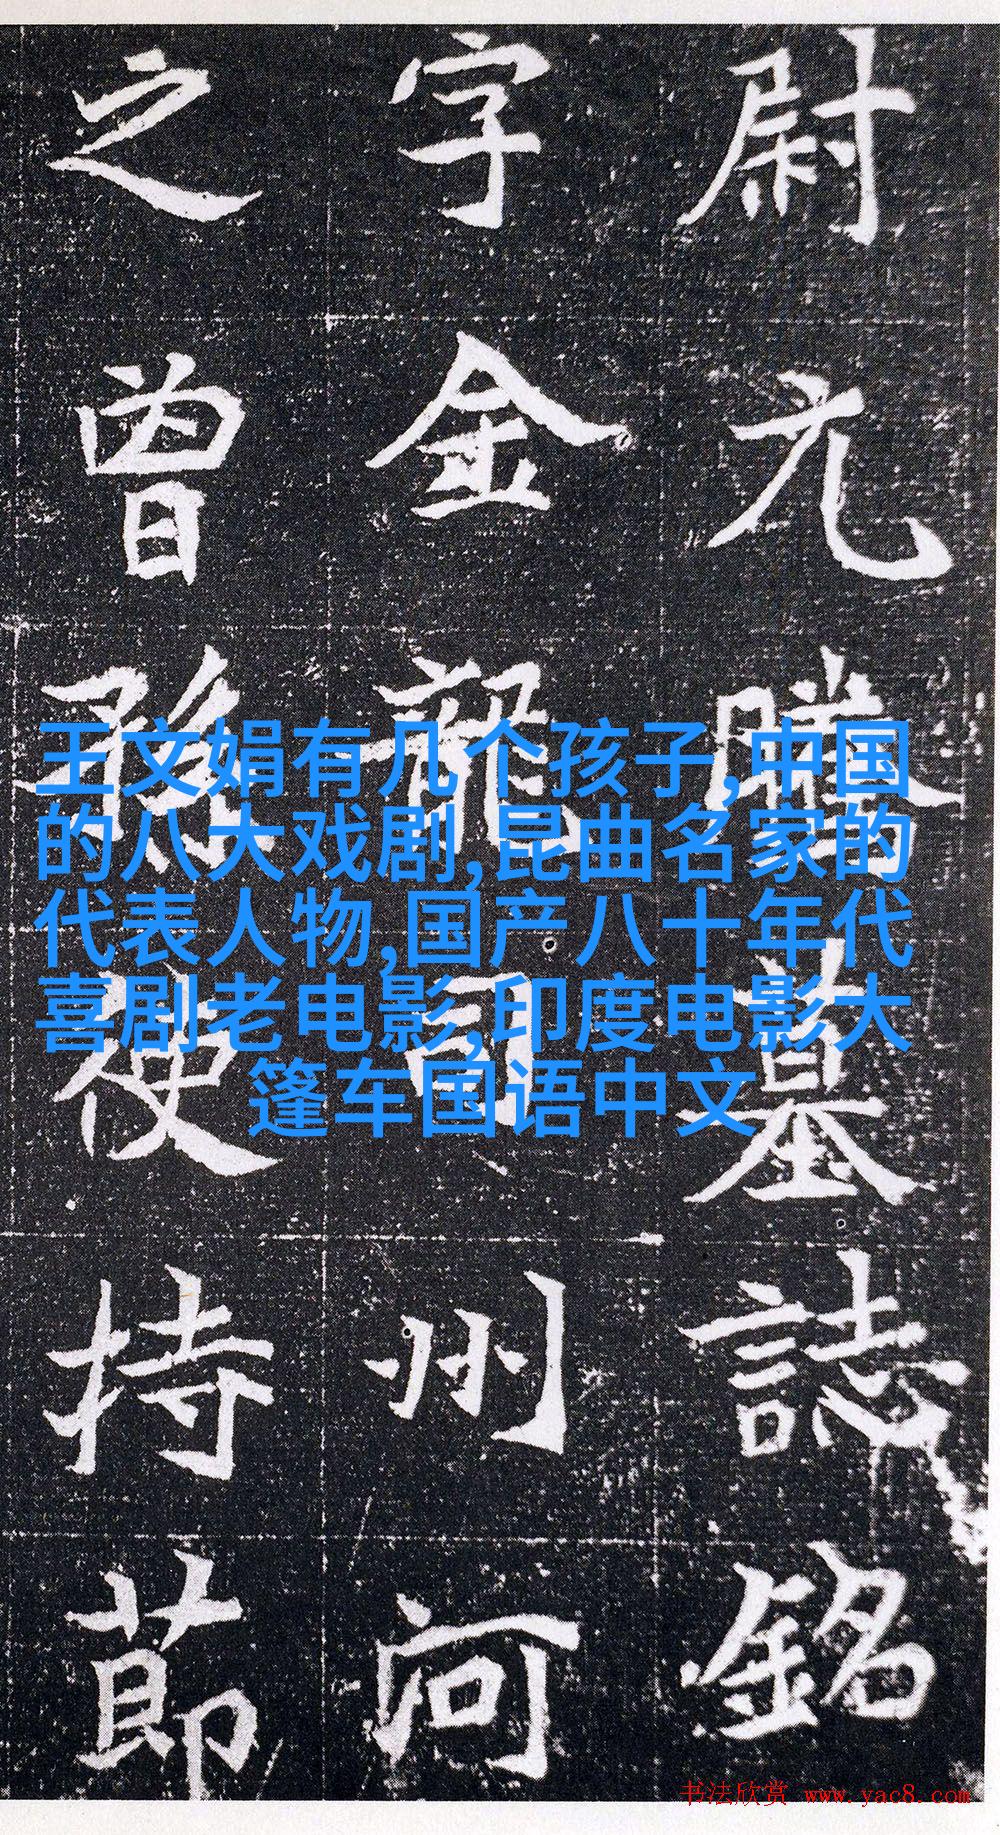 尉元騰墓誌銘
字金龍司州河
之曾孫使持節
王文娟有几个孩子,中国
的八大戏剧,昆曲名家的
代表人物,国产八十年代
喜剧老电影,印度电影大
篷车国语中文
书法欣赏 www.yac8.com